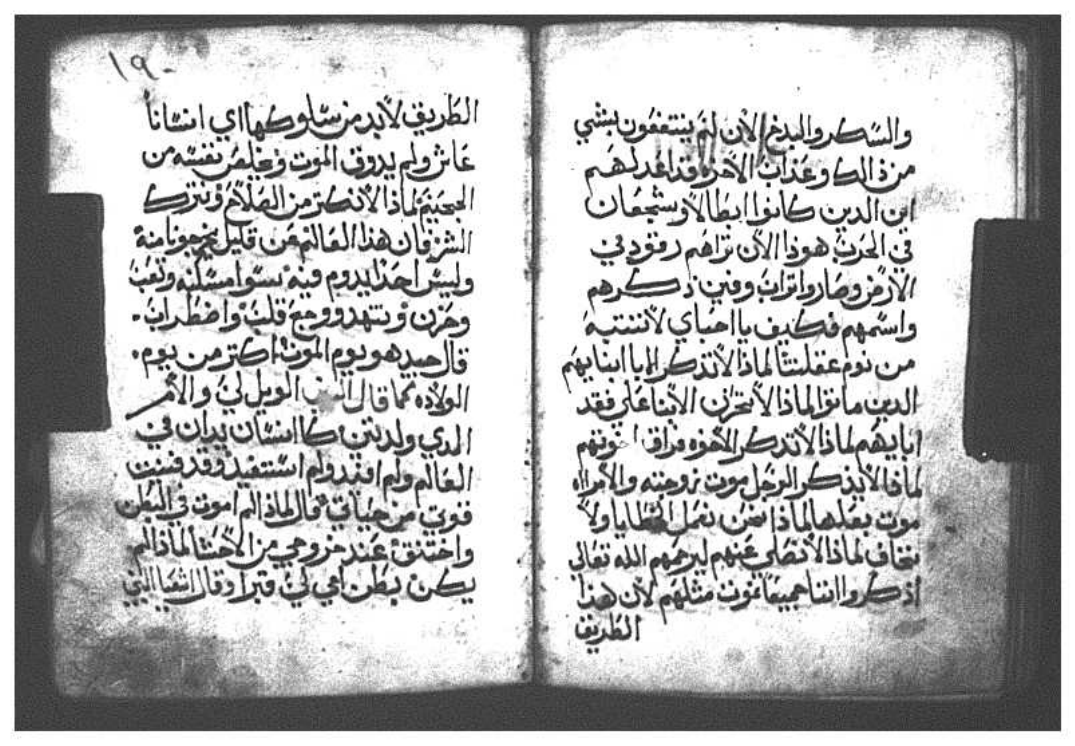 والسكر والبدخ الان لم ينتفعون بشي
من ذالك وعذاب الاخره قد اعد لهم
اين الدين كانوا ابطالا وشجعان
في الحرب هودا الان تراهم رقود في
الارض وصاروا تراب وفني ذكرهم
واسمهم فكيف يا احباي لا ننتبه
من نوم غفلتنا لماذا لا تذكر الابا ابنايهم
الدين ماتوا لماذا لا تحزن الابنا على فقد
ابايهم لماذا لا تدكر الاخوه فراق اخوتهم
لماذا لا يذكر الرجل موت زوجته والامراه
موت بعلها لماذا نحن نعمل الخطايا ولا
نخاف لماذا لا نصلي عنهم ليرحمهم الله تعالى
اذكروا اننا جميعا نموت مثلهم لان هذا
الطريق
١٩٠
الطريق لابد من سلوكها اي انسانا
عاش ولم يدوق الموت ويخلص نفسه من
الجحيم لماذا لا نكتر من الصلاح ونترك
الشر فان هذا العالم عن قليل يخرجونا منه
وليس احد يدوم فيه سوا مسكنه وتعب
وحزن وتنهد ووجع قلب واضطراب.
قال جيد هو يوم الموت اكتر من يوم.
الولاده كما قال النبي الويل لي والامر
الدي ولدتني كانسان يدان في
العالم ولم اقدر ولم استفيد وقد فنيت
قوتي من حياتي قال لماذا لم اموت في البطن
واختنق عند خروجي من الاحشا لماذا لم
يكن بطن امي لي قبرا وقال اشعيا النبي